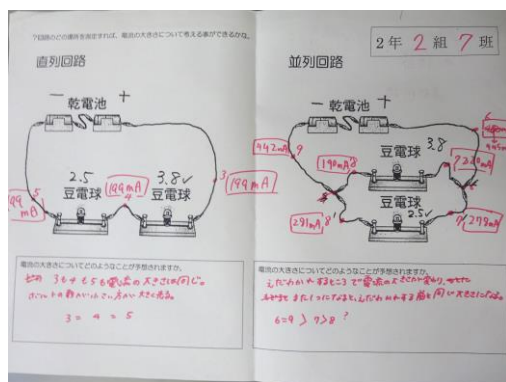 7回路のどの場所を測定すれば、電流の大きさについて考える事ができるかな。
直列回路
－ 乾電池 ＋
2.5
豆電球
3.8V
豆電球
199mA
5
199mA
4
3
199mA
電流の大きさについてどのようなことが予想されますか。
3も4も5も電流の大きさは同じ。
3 = 4 = 5
2年 2組 7班
並列回路
－ 乾電池 ＋
6
442mA
9
190mA
8
3.8
豆電球
7
豆電球
2.5V
8'
7'
279mA
電流の大きさについてどのようなことが予想されますか。
えだわかれするところで電流の大きさが変わり、
また1つになると、えだわかれする前と同じ大きさになる。
6=9 > 7 > 8 ?